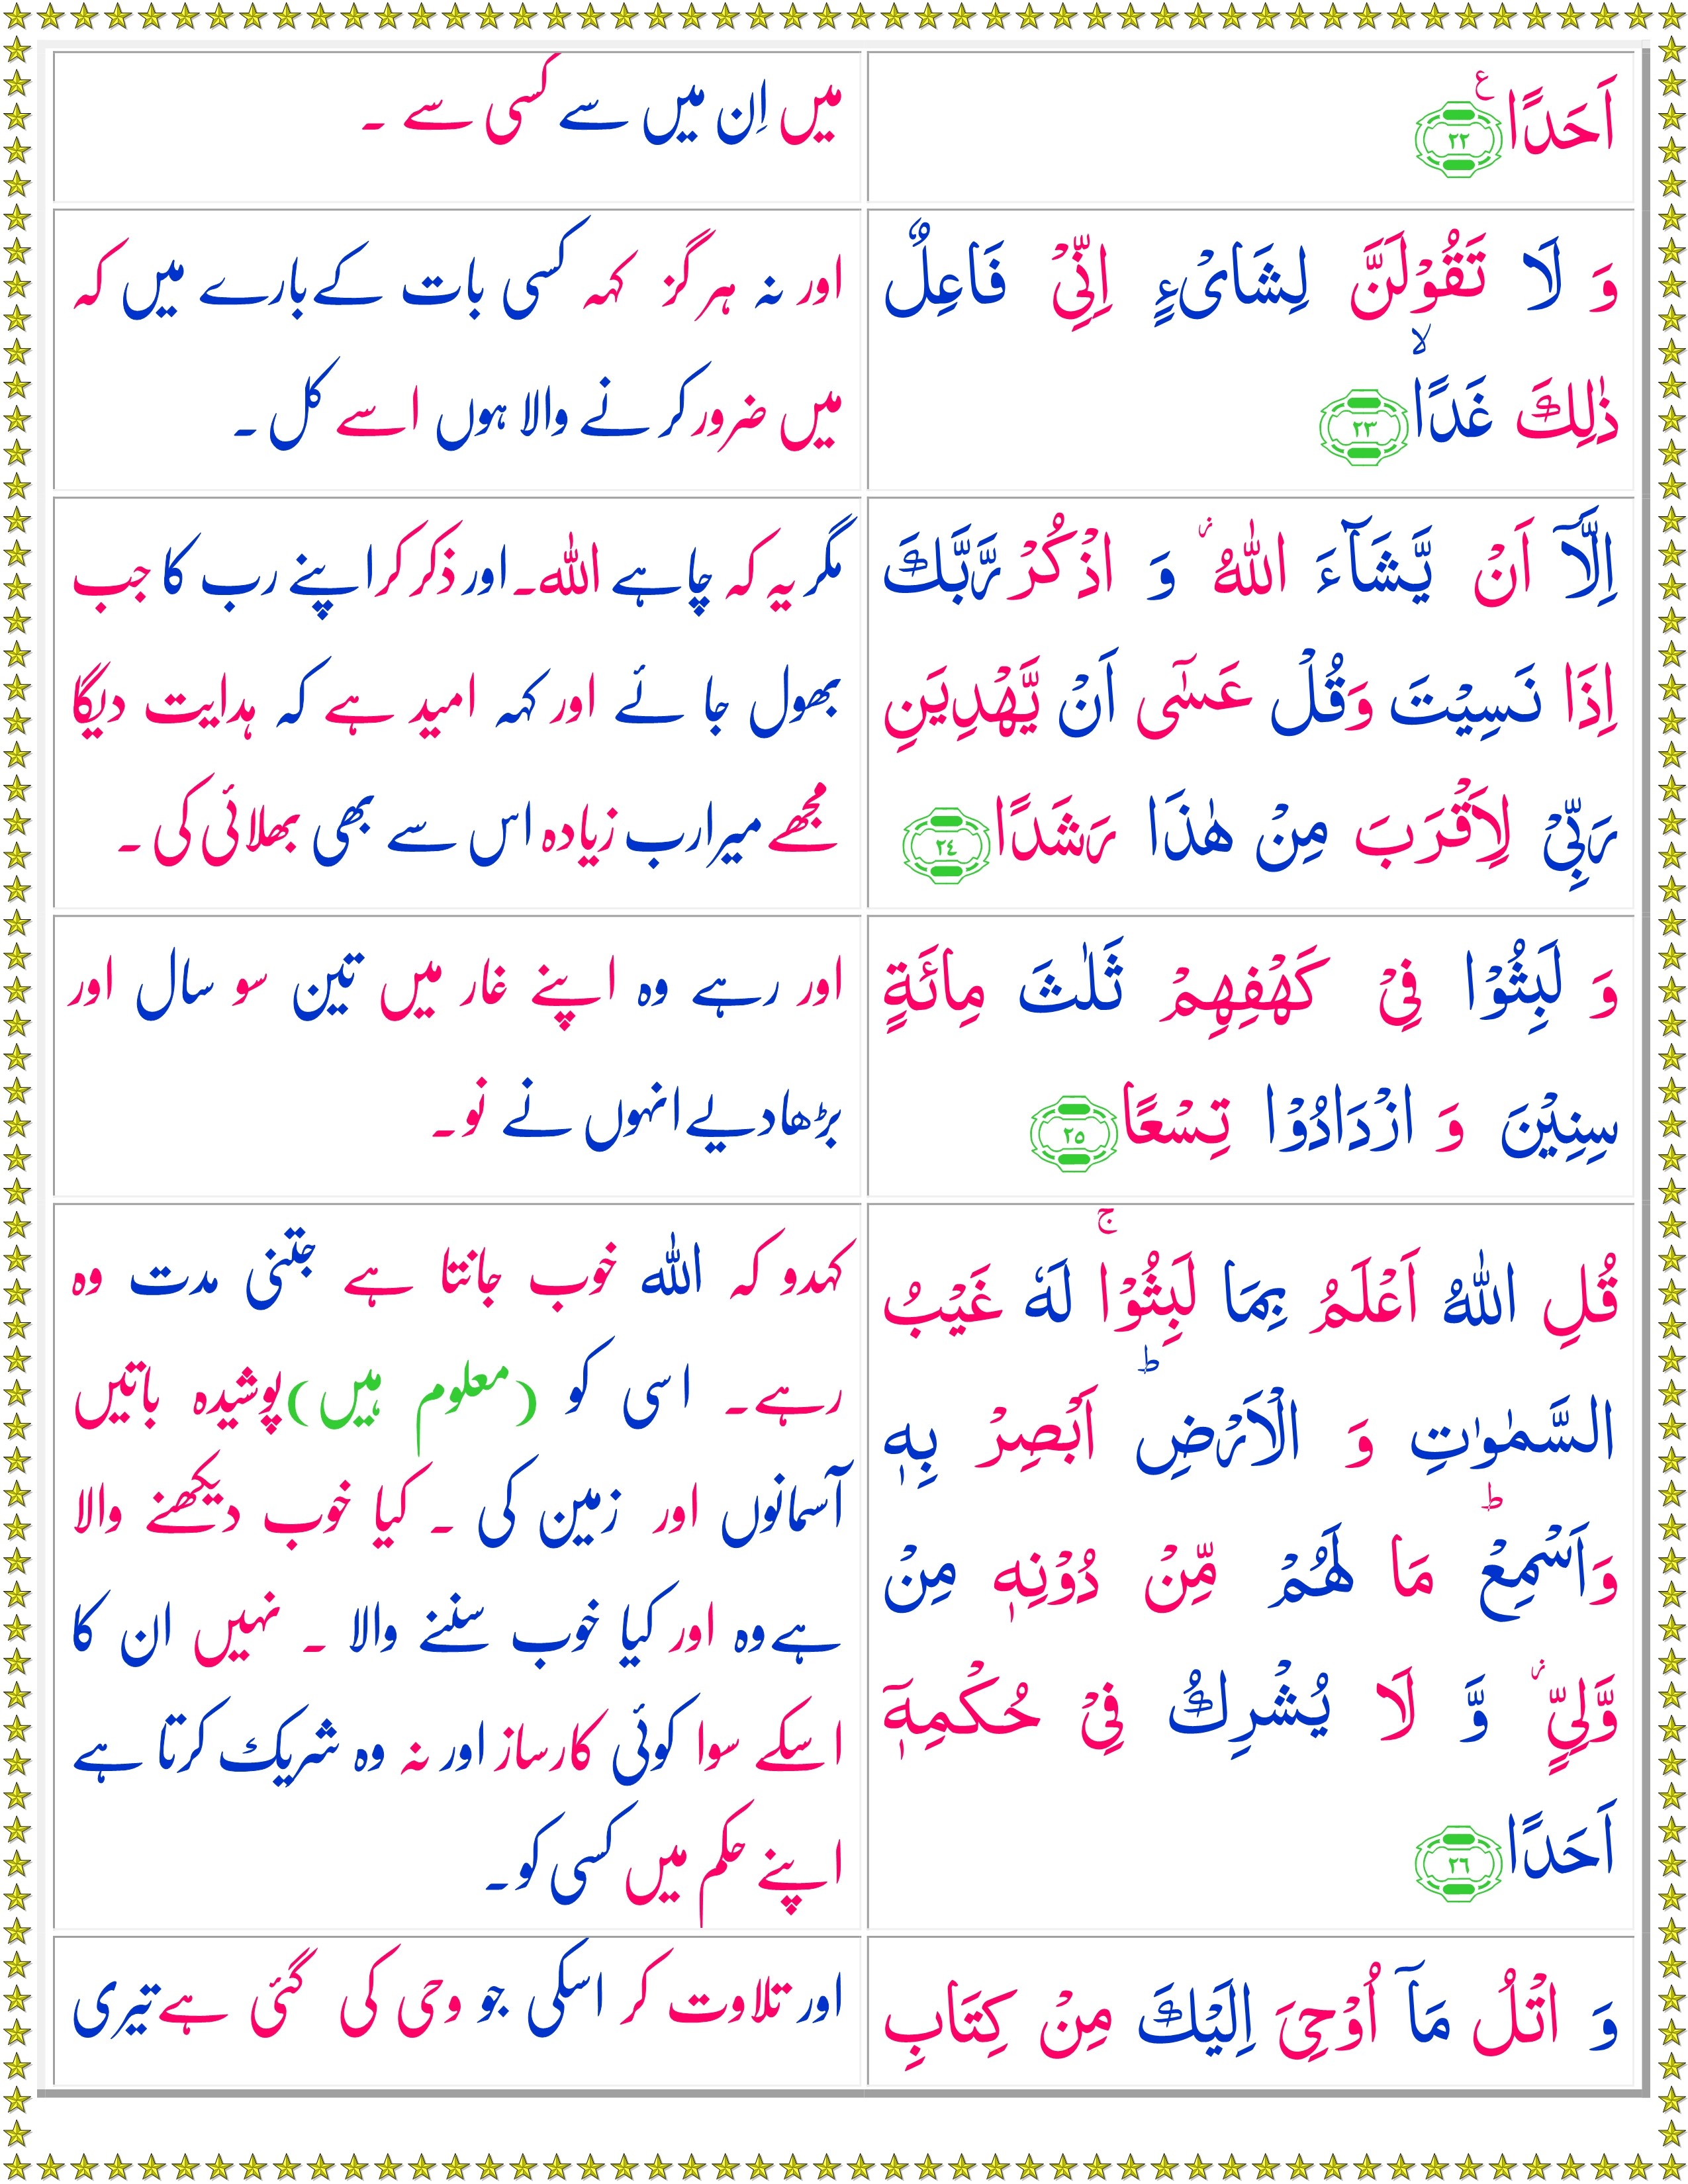 اَحَدًا ۲۲ ع
میں اِن میں سے کسی سے ۔
وَ لَا تَقُوْلَنَّ لِشَایْءٍ اِنِّیْ فَاعِلٌ
ذٰلِكَ غَدًا ۙ ۲۳
اور نہ ہرگز کہہ کسی بات کے بارے میں کہ
میں ضرور کرنے والا ہوں اسے کل ۔
اِلَّاۤ اَنْ یَّشَآءَ اللّٰهُ ؗ وَ اذْكُرْ رَّبَّكَ
اِذَا نَسِیْتَ وَقُلْ عَسٰۤی اَنْ یَّهْدِیَنِ
رَبِّیْ لِاَقْرَبَ مِنْ هٰذَا رَشَدًا ۲٤
مگر یہ کہ چاہے اللہ ۔ اور ذکر کر اپنے رب کا جب
بھول جائے اور کہہ امید ہے کہ ہدایت دیگا
مجھے میرا رب زیادہ اس سے بھی بھلائی کی ۔
وَ لَبِثُوْا فِیْ كَهْفِهِمْ ثَلٰثَ مِائَةٍ
سِنِیْنَ وَ ازْدَادُوْا تِسْعًا ۲۵
اور رہے وہ اپنے غار میں تین سو سال اور
بڑھا دیے انہوں نے نو ۔
قُلِ اللّٰهُ اَعْلَمُ بِمَا لَبِثُوْا ۚ لَهٗ غَیْبُ
السَّمٰوٰتِ وَ الْاَرْضِ ؕ اَبْصِرْ بِهٖ
وَاَسْمِعْ ؕ مَا لَهُمْ مِّنْ دُوْنِهٖ مِنْ
وَّلِیٍّ ؗ وَّ لَا یُشْرِكُ فِیْ حُكْمِهٖۤ
اَحَدًا ۲٦
کہدو کہ اللہ خوب جانتا ہے جتنی مدت وہ
رہے ۔ اسی کو (معلوم ہیں) پوشیدہ باتیں
آسمانوں اور زمین کی ۔ کیا خوب دیکھنے والا
ہے وہ اور کیا خوب سننے والا ۔ نہیں ان کا
اسکے سوا کوئی کارساز اور نہ وہ شریک کرتا ہے
اپنے حکم میں کسی کو ۔
وَ اتْلُ مَاۤ اُوْحِیَ اِلَیْكَ مِنْ كِتَابِ
اور تلاوت کر اسکی جو وحی کی گئی ہے تیری